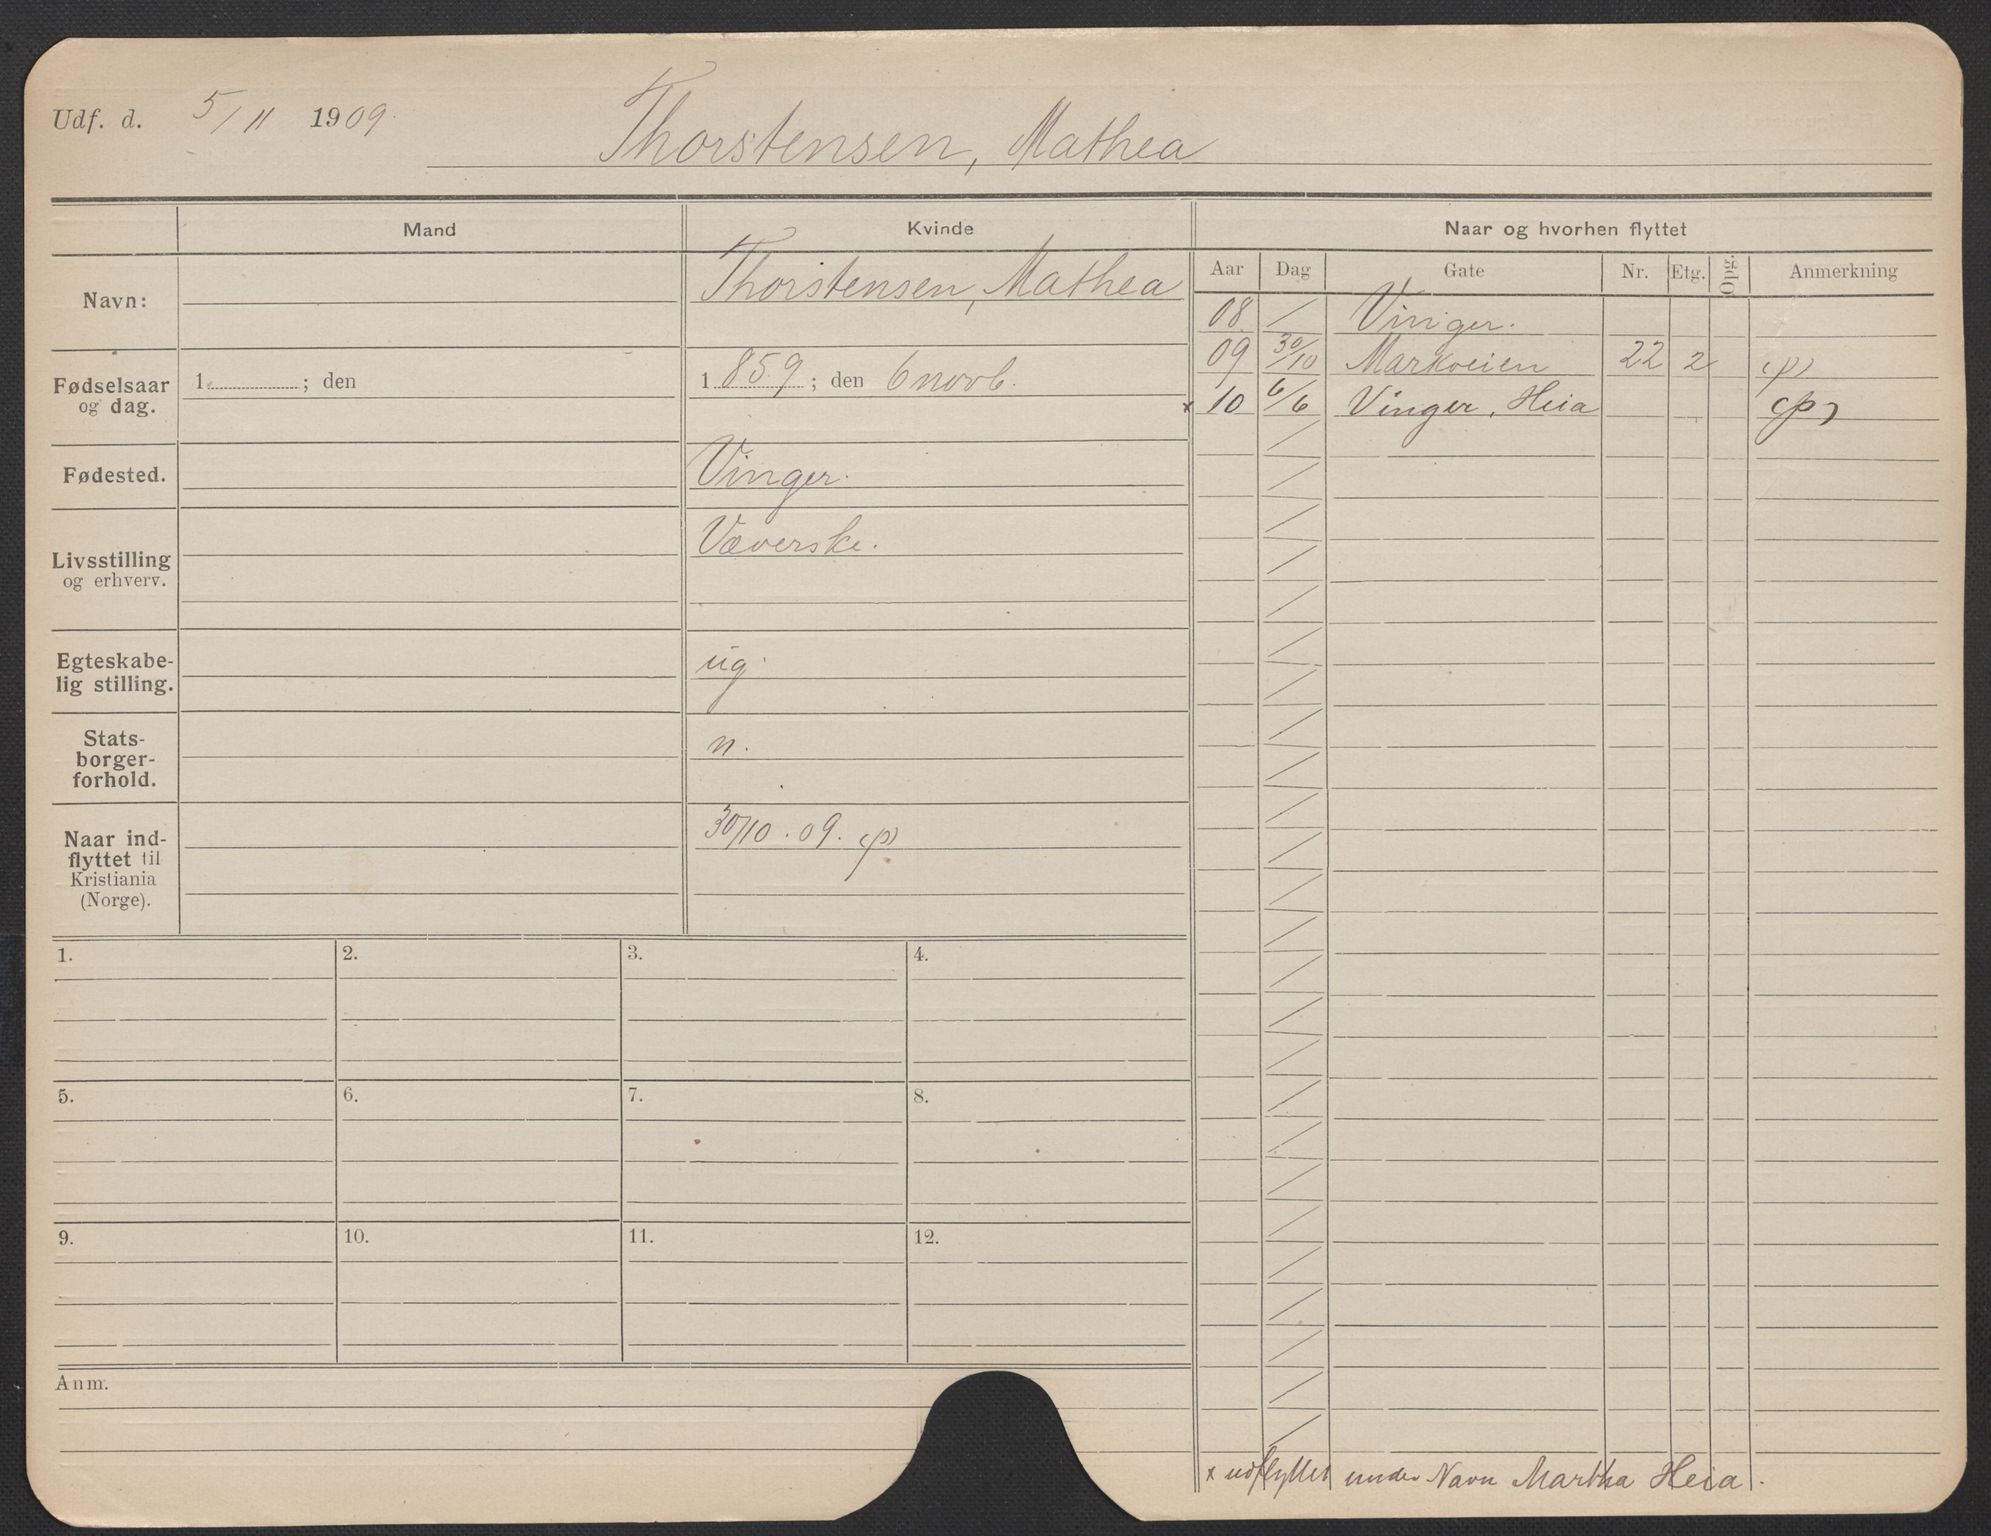 Udf. d. 5/11 1909.
Thorstensen, Mathea
Mand
Kvinde
Naar og hvorhen flyttet
Navn:
Thorstensen, Mathea
Fødselsaar
og dag.
1 ; den
1859; den 6 novb.
Fødested.
Vinger.
Livsstilling
og erhverv.
Væverske.
Egteskabe-
lig stilling.
ug.
Stats-
borger-
forhold.
n.
Naar ind-
flyttet til
Kristiania
(Norge).
30/10. 09. (p)
Aar Dag Gate Nr. Etg. Opg. Anmerkning
08 / Vinger.
09 30/10 Markveien 22 2 (p)
x 10 6/6 Vinger, Heia (p)
1. 2. 3. 4.
5. 6. 7. 8.
9. 10. 11. 12.
Anm.
x udflyttet under Navn Martha Heia.